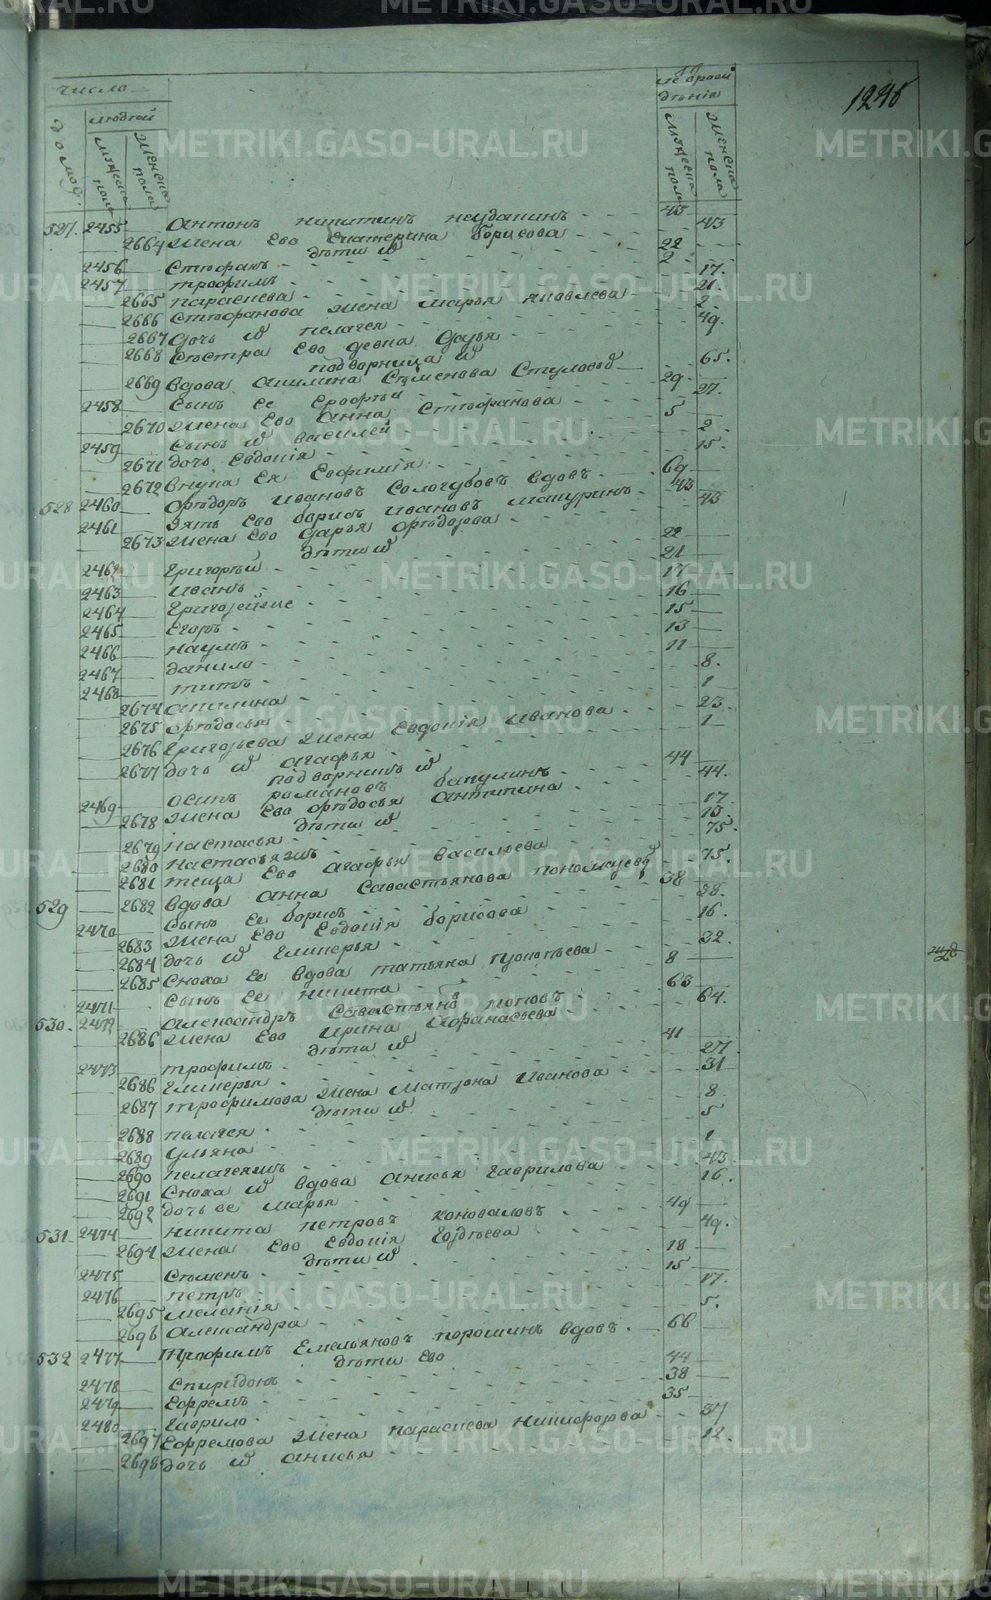 1246
числа
людей
домов
мужеска пола
женска пола
мужеска пола
женска пола
527. 2455 Антонъ никитинъ неудачинъ 45
2664 жена Ево Екатерина борисова 43
дѣти их
2456 Стефанъ 22
2457 трофимъ 2
2665 парасковева 17.
2666 Стефанова жена марья яковлева 21
2667 дочь их пелагея 2
2668 Сестра Ево девка дарья 49.
подворница их
2669 вдова акилина Семенова 65.
2458 Сынъ ее Ерофей 29
2670 жена Ево анна Стефанова 27.
2459 Сынъ их василей 5
2671 дочь Евдокія 2
2672 внука Ея Евфимія 15.
528 2460 Федоръ ивановъ Сологубовъ вдовъ 69
2461 зять Ево борисъ ивановъ мичуринъ 43
2673 жена Ево дарья Федорова 43
дѣти их
2462 Григорей 22
2463 иванъ 21
2464 Григорейже 17
2465 Егоръ 16
2466 наумъ 15
2467 данило 13
2468 титъ 11
2674 акилина 8.
2675 Федосья 1
2676 Григорьева жена Евдокія иванова 23.
2677 дочь их агафья 1
подворникъ их
2469 осипъ романовъ бакулинъ 44
2678 жена Ево Федосья антипина 44.
дѣти их
2679 настасья 17
2680 настасьяжъ 13.
2681 теща Ево агафья васильева 75.
529 2682 вдова анна Савастьянова пономарева 75.
2470 Сынъ ее борисъ 38
2683 жена Ево Евдокія борисова 38.
2684 дочь их Гликерья 16
2685 Сноха ее вдова татьяна прокопьева 32.
2471 Сынъ ее никита 8
530. 2472 Александръ Савастьяновъ 63
2686 жена Ево ирина Афанасьева 64.
дѣти их
2473 трофимъ 41
2686 Гликерья 27
2687 трофимова жена матрона иванова 31
дѣти их
2688 пелагея 8
2689 ульяна 5
2690 пелагеяжъ 1
2691 Сноха их вдова анисья Гаврилова 43.
2692 дочь ее марья 16.
531. 2474 никита петровъ коноваловъ 49
2694 жена Ево Евдокія Гордеева 49.
дѣти их
2475 Семенъ 18
2476 петръ 15
2695 меланія 17.
2696 Александра 5.
532 2477 Трофимъ Емельяновъ порошинъ вдовъ. 66
дѣти Ево
2478 Спиридонъ 44
2479 Ефремъ 38
2480 Гаврило 35
2697 Ефремова жена парасковева никифорова 37
2698 дочь их анисья 12.
METRIKI.GASO-URAL.RU